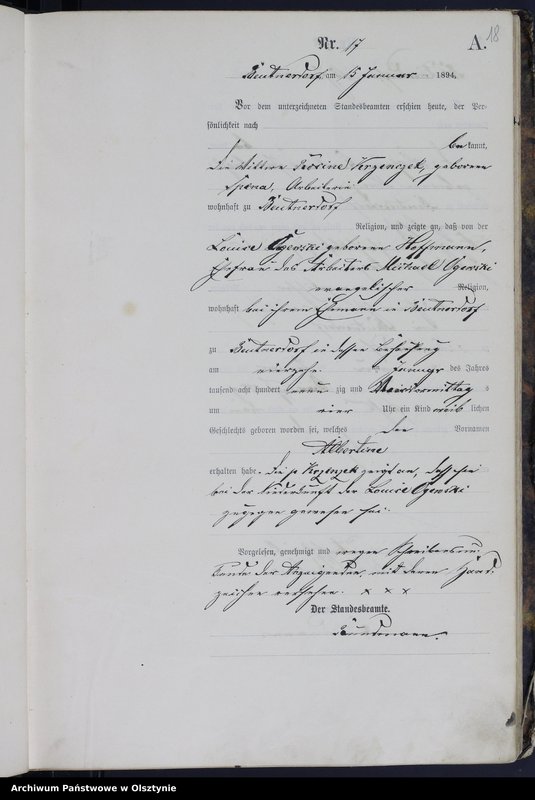 18
Nr. 17
A.
Beutnerdorf, am 15 Januar 1894.
Vor dem unterzeichneten Standesbeamten erschien heute, der Per-
sönlichkeit nach
bekannt,
die Wittwe Krzenczek, geborene
Arbeiterin
wohnhaft zu Beutnerdorf
Religion, und zeigte an, daß von der
Louise Ogewski geborenen Hoffmann,
Ehefrau des Arbeiters Michael Ogewski
evangelischer Religion,
wohnhaft bei ihrem Ehemann in Beutnerdorf
zu Beutnerdorf in dessen Behausung
am vierzehn Januar des Jahres
tausend acht hundert neunzig und vier Vormittags
um vier Uhr ein Kind weiblichen
Geschlechts geboren worden sei, welches den Vornamen
Albertine
erhalten habe. Die p Krzenczek zeigt an, daß sie
bei der Niederkunft der Louise Ogewski
zugegen gewesen sei.
Vorgelesen, genehmigt und wegen Schreibensun-
kunde der Anzeigenden, mit deren Hand-
zeichen versehen. x x x
Der Standesbeamte.
Archiwum Państwowe w Olsztynie